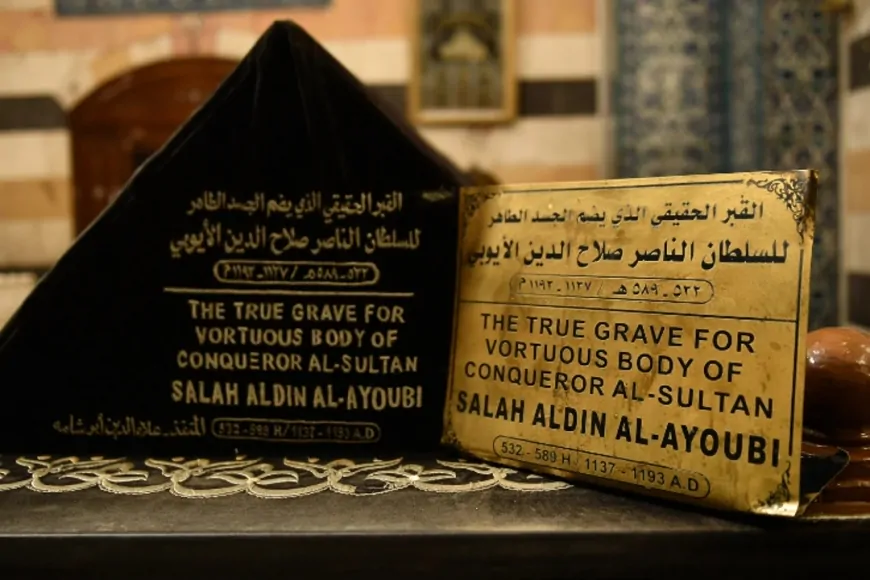 القبر الحقيقي الذي يضم الجسد الطاهر
للسلطان الناصر صلاح الدين الأيوبي
٥٣٢ـ٥٨٩هـ / ١١٣٧ـ١١٩٣م
THE TRUE GRAVE FOR
VORTUOUS BODY OF
CONQUEROR AL-SULTAN
SALAH ALDIN AL-AYOUBI
532-589 H/1137-1193 A.D
المنفذ علاء الدين أبو شامه
القبر الحقيقي الذي يضم الجسد الطاهر
للسلطان الناصر صلاح الدين الأيوبي
٥٣٢ ـ ٥٨٩ هـ / ١١٣٧ ـ ١١٩٣ م
THE TRUE GRAVE FOR
VORTUOUS BODY OF
CONQUEROR AL-SULTAN
SALAH ALDIN AL-AYOUBI
532 - 589 H / 1137 - 1193 A.D